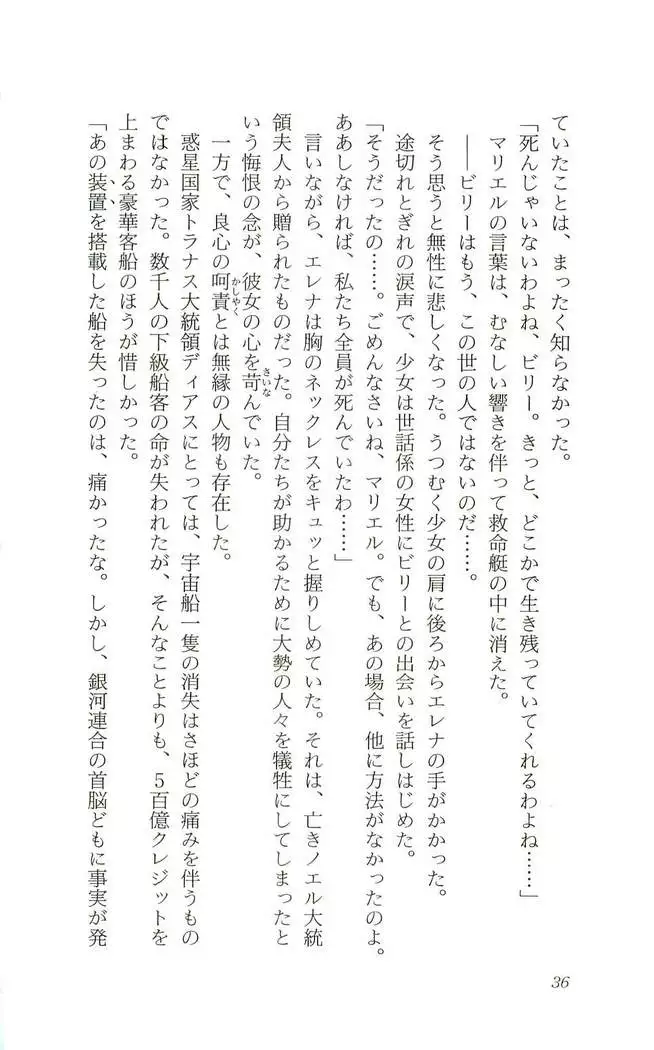 ていたことは、まったく知らなかった。
「死んじゃいないわよね、ビリー。きっと、どこかで生き残っていてくれるわよね……」
マリエルの言葉は、むなしい響きを伴って救命艇の中に消えた。
――ビリーはもう、この世の人ではないのだ……。
そう思うと無性に悲しくなった。うつむく少女の肩に後ろからエレナの手がかかった。
途切れとぎれの涙声で、少女は世話係の女性にビリーとの出会いを話しはじめた。
「そうだったの……。ごめんなさいね、マリエル。でも、あの場合、他に方法がなかったのよ。
ああしなければ、私たち全員が死んでいたわ……」
言いながら、エレナは胸のネックレスをキュッと握りしめていた。それは、亡きノエル大統
領夫人から贈られたものだった。自分たちが助かるために大勢の人々を犠牲にしてしまったと
いう悔恨の念が、彼女の心を苛んでいた。
一方で、良心の呵責とは無縁の人物も存在した。
惑星国家トラナス大統領ディアスにとっては、宇宙船一隻の消失はさほどの痛みを伴うもの
ではなかった。数千人の下級船客の命が失われたが、そんなことよりも、5百億クレジットを
上まわる豪華客船のほうが惜しかった。
「あの装置を搭載した船を失ったのは、痛かったな。しかし、銀河連合の首脳どもに事実が発
36